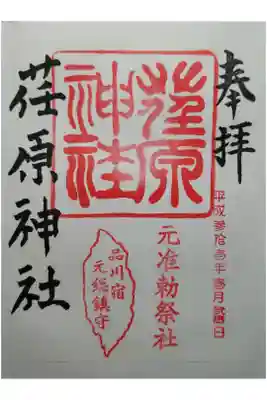 奉拝
平成参拾壱年壱月弐四日
元准勅祭社
荏原神社
品川宿
元総鎮守
荏原神社